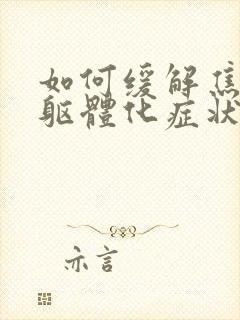 如何缓解焦
躯體化症状
亦言